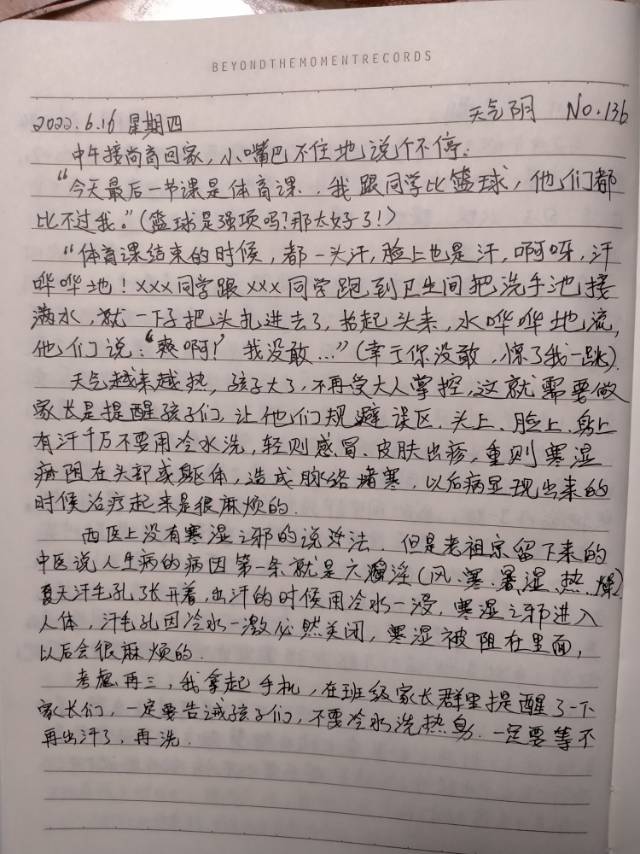 BEYONDTHEMOMENTRECORDS
2022.6.16 星期四 天气阴 No.136
中午接尚育回家，小嘴巴不住地说个不停：
“今天最后一节课是体育课，我跟同学比篮球，他们都
比不过我。”(篮球是强项吗？那太好了！)
“体育课结束的时候，都一头汗，脸上也是汗，啊呀，汗
哗哗地！xxx同学跟xxx同学跑到卫生间把洗手池接
满水，就一下子把头扎进去了，抬起头来，水哗哗地流，
他们说：“爽啊！”我没敢…”(幸亏你没敢，惊了我一跳)。
天气越来越热，孩子大了，不再受大人掌控，这就需要做
家长是提醒孩子们，让他们规避误区，头上、脸上、身上
有汗千万不要用冷水洗，轻则感冒、皮肤出疹，重则寒湿
瘀阻在头部或躯体，造成脉络堵塞，以后病显现出来的
时候治疗起来是很麻烦的。
西医上没有寒湿之邪的说法，但是老祖宗留下来的
中医说人生病的病因第一条就是六淫(风、寒、暑、湿、热、燥)
夏天汗毛孔张开着，出汗的时候用冷水一浸，寒湿之邪进入
人体，汗毛孔因冷水一激必然关闭，寒湿被阻在里面，
以后会很麻烦的。
考虑再三，我拿起手机，在班级家长群里提醒了一下
家长们，一定要告诫孩子们，不要冷水洗热身，一定要等不
再出汗了，再洗。